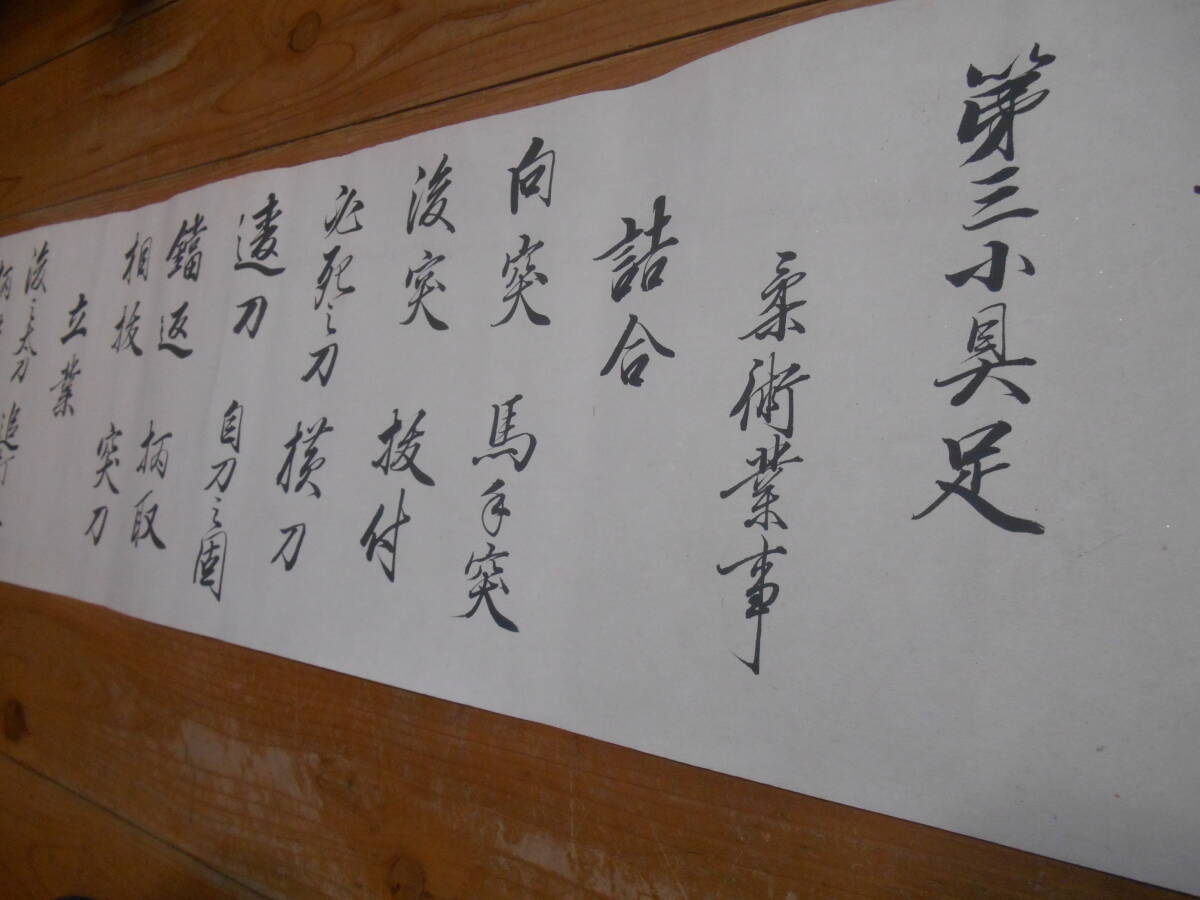 第三小具足
柔術業事
詰合
向突 馬手突
後突 抜付
必死之刀 横刀
違刀 自刀之固
鐺返 柄取
相抜 突刀
立業
後之太刀 追打